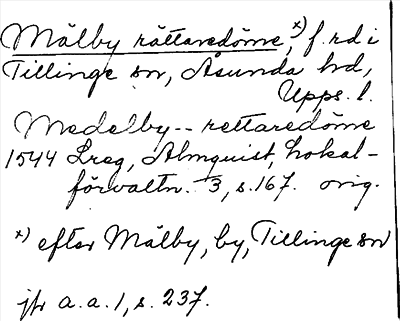 Mälby rättaredöme, x) f. rd i
Tillinge sn, Åsunda hd,
Upps. l.
Medelby -- rettaredöme
1544 Lreg, Almquist, Lokal-
förvaltn. 3, s. 167. orig.
x) efter Mälby, by, Tillinge sn
jfr a. a. 1, s. 237.